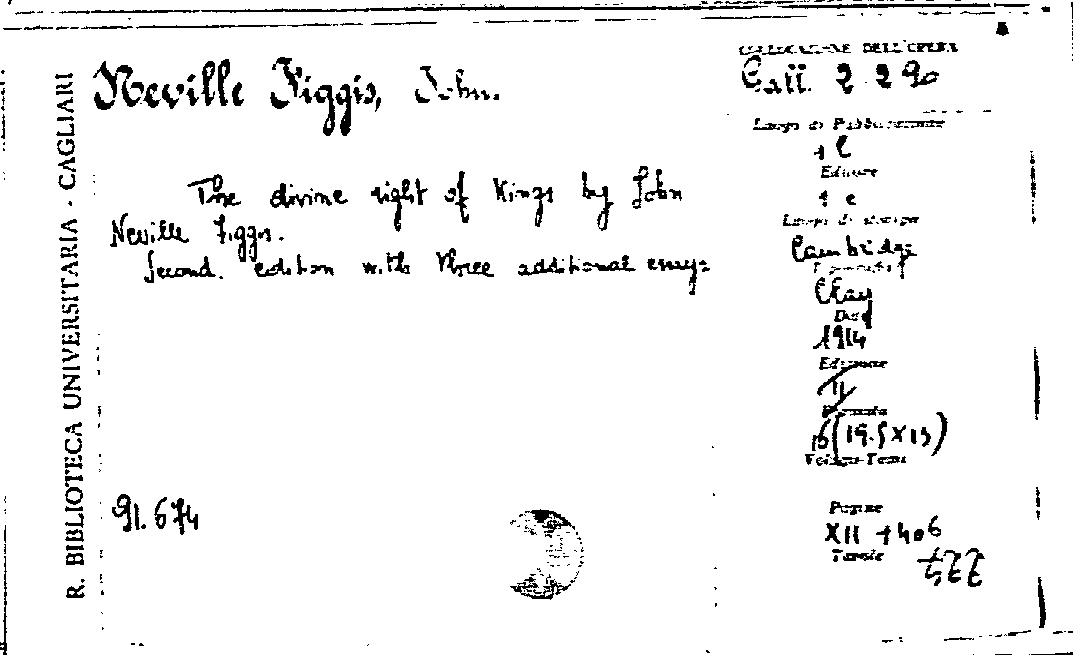 R. BIBLIOTECA UNIVERSITARIA - CAGLIARI
Neville Figgis, John.
The divine right of Kings by John
Neville Figgis.
Second. edition with three additional essays
91.674
COLLOCAZIONE DELL'OPERA
Gall. 2 2 90
Luogo di Pubblicazione
Editore
Luogo di stampa
Cambridge
Clay
Data
1914
Edizione
II
Formato
16 (19.5 X 13)
Volume-Tomi
Pagine
XII + 406
Tavole